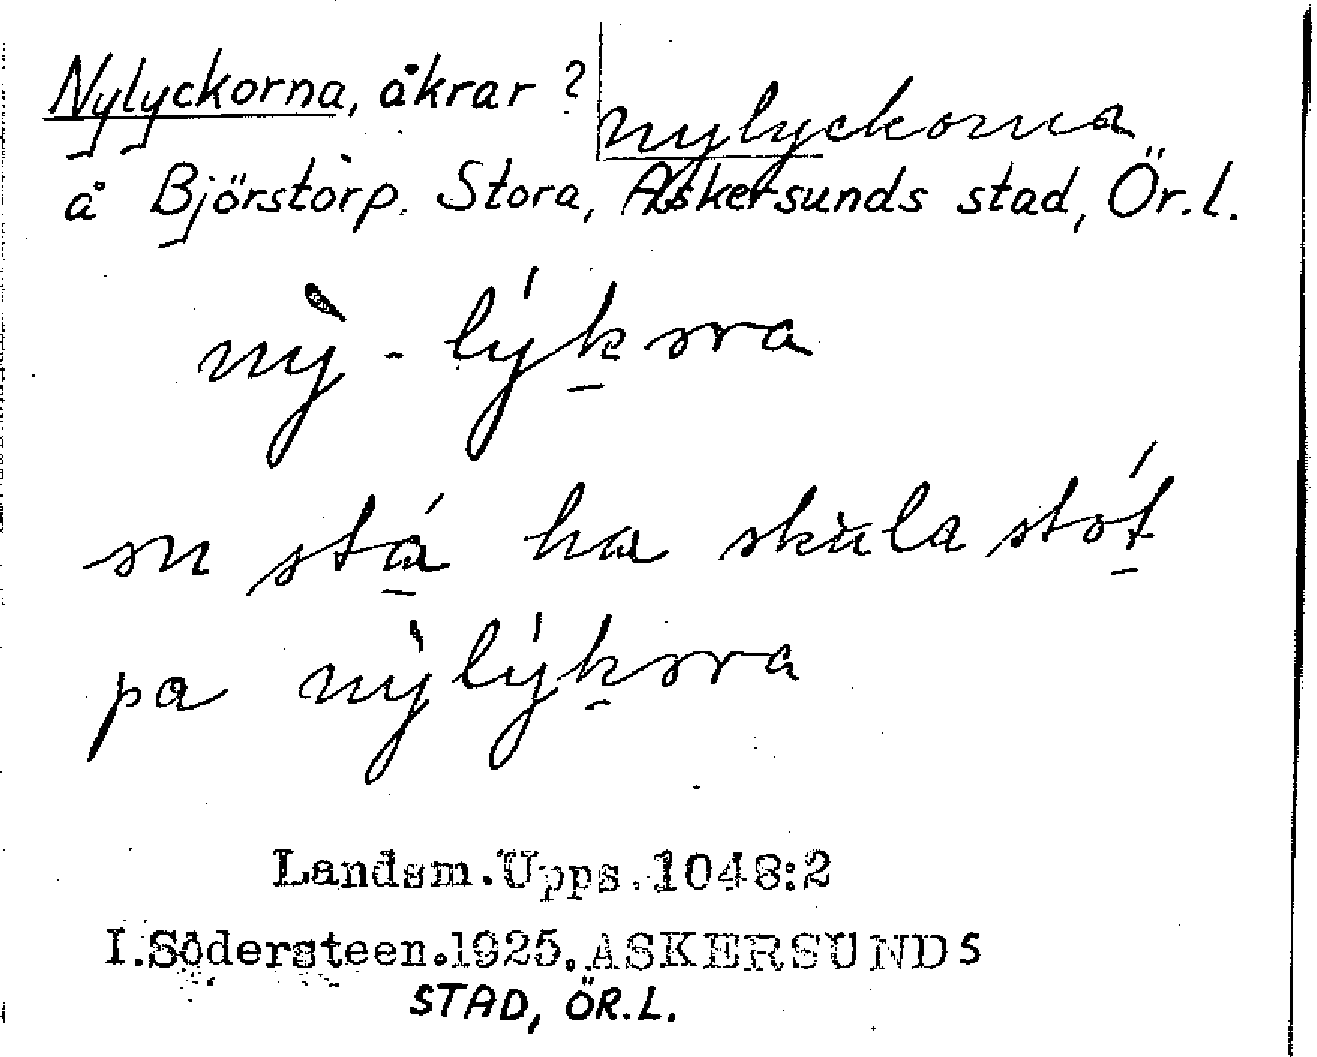 Nylyckorna, åkrar ?
nylyckorna
å Björstorp. Stora, Askersunds stad, Ör.l.
nỳ - lýk̠ ɹra
stá̠ ha skùla stót̠
pa nỳlýk̠ɹra
Landsm.Upps.1048:2
I.Södersteen.1925.ASKERSUNDS
STAD, ÖR.L.